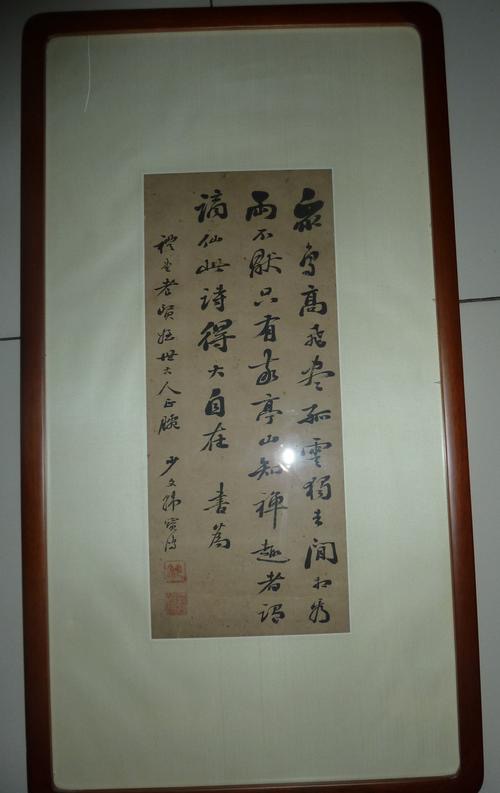 衆鳥高飛盡孤雲獨去閒相看
兩不厭只有敬亭山知禪趣者謂
謫仙此詩得大自在 書爲
禮堂老賢姪世大人正腕 少文孫